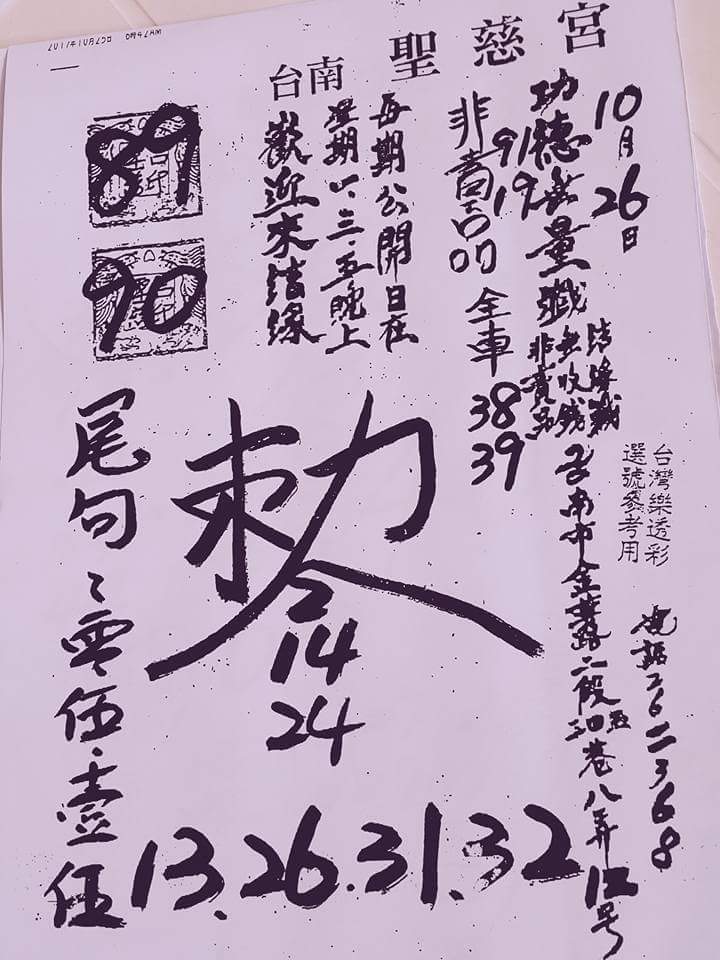 2017年10月25日 8時42AM
台南 聖慈宮
10月26日
功德無量
91
19
非賣品
全車
38
39
結緣
無收錢
非賣品
台灣樂透彩
選號參考用
每期公開日在
星期一.三.五晚上
歡迎來結緣
89
90
敕
2
14
24
尾句:零伍.壹伍
13.26.31.32
台南市金華路二段
巷八弄12号
電話2622368